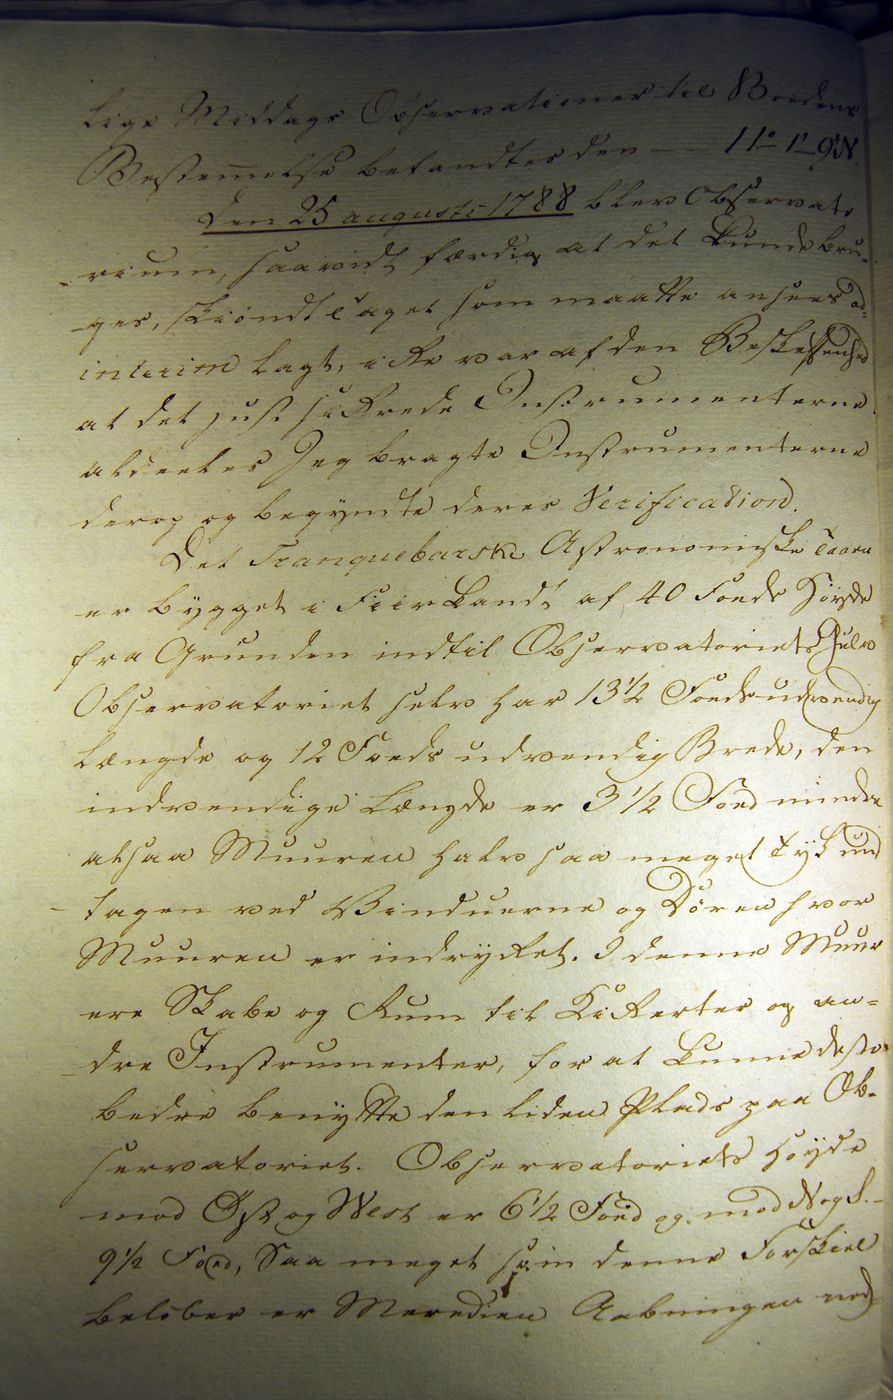 lige Middags Observationer til Bredens
Bestem̅else befandtes den — 11° 1' 9" N.
Den 25 augusti 1788 blev Observato
-rium, saavidt færdig at det kunde bru-
ges, skiöndt Taget som maatte ansees ad
interim lagt, ikke var af den Beskaffenhed
at det just sikrede Instrumenterne
aldeeles Jeg bragte Instrumenterne
derop og begÿndte deres Verification.
Det Tranquebarske Astronomiske Taarn
er bÿgget i Fiirkandt af 40 Foeds Höÿde
fra Grunden indtil Observatoriets Gulv
Observatoriet selv har 13½ Foeds udvendig
Længde og 12 Foeds udvendig Brede, den
indvendige Længde er 3½ Foed mindre
altsaa Muuren halv saa meget tÿk und
-tagen ved Vinduerne og Dören hvor
Muuren er indrÿkket. I denne Muur
ere Skabe og Rum til Kikerter og an=
-dre Instrumenter, for at kunne desto
bedre benÿtte den liden Plads paa Ob-
servatoriet. Observatoriets Höÿde
mod Öst og West er 6½ Foed og mod N og S. -
9½ Foed, Saa meget som denne Forskiel
belöber er Meredien Aabningen ned-